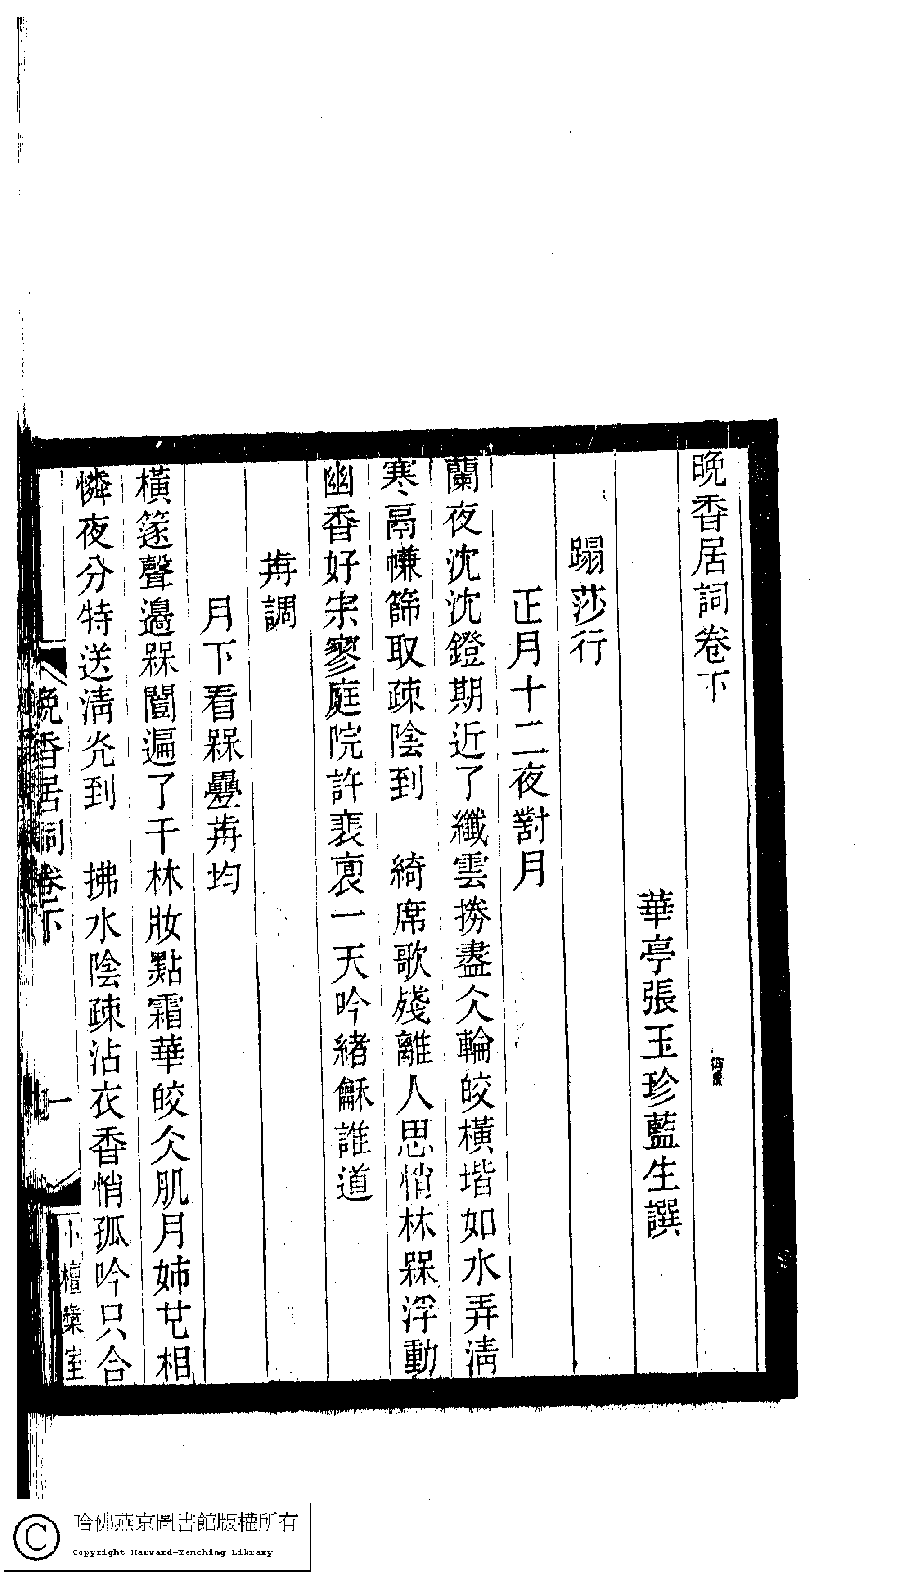 晚香居詞卷下
華亭張玉珍藍生譔
蹋莎行
正月十二夜對月
蘭夜沈沈鐙期近了纖雲撈盡仌輪皎橫堦如水弄淸
寒鬲㡘篩取疎陰到　綺席歌殘離人思悄林槑浮動
幽香好宋寥庭院許裵裒一天吟緖龢誰道
歬調
月下看槑疊歬均
橫篴聲邊槑闓遍了千林妝點霜華皎仌肌月姊也相
憐夜分特送淸灮到　拂水陰疎沾衣香悄孤吟只合
晚香居詞卷下
一
小檀欒室
哈佛燕京圖書館版權所有
Copyright Harvard-Yenching Library